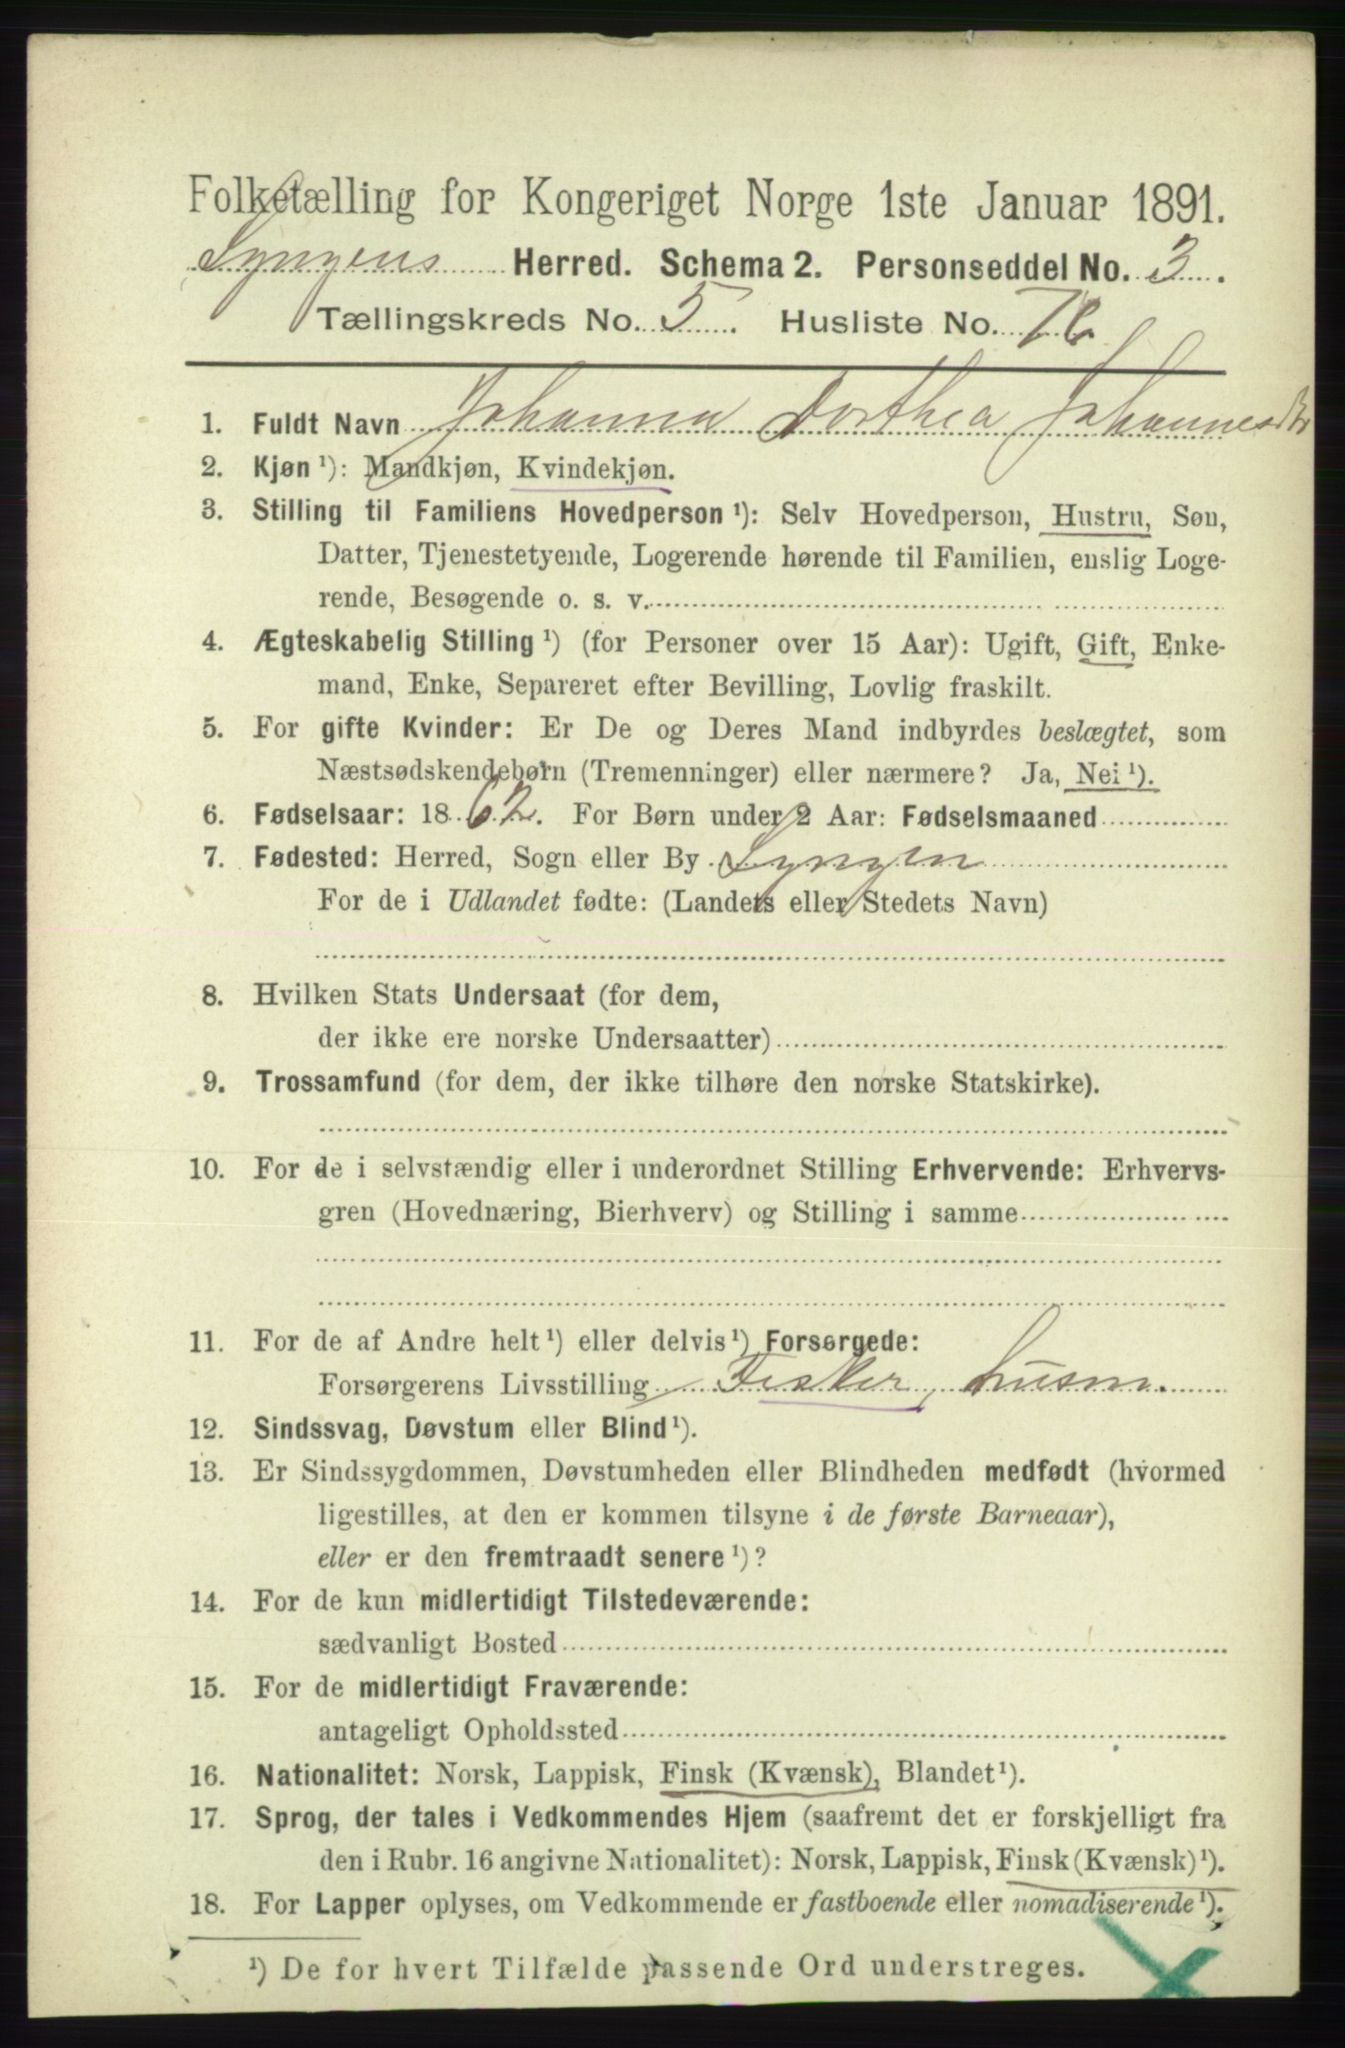 Folketælling for Kongeriget Norge 1ste Januar 1891.
Lyngens Herred. Schema 2. Personseddel No. 3.
Tællingskreds No. 5. Husliste No. 76
1. Fuldt Navn Johanna Dorthea Johannesdtr
2. Kjøn ¹): Mandkjøn, Kvindekjøn.
3. Stilling til Familiens Hovedperson ¹): Selv Hovedperson, Hustru, Søn,
Datter, Tjenestetyende, Logerende hørende til Familien, enslig Loge-
rende, Besøgende o. s. v.
4. Ægteskabelig Stilling ¹) (for Personer over 15 Aar): Ugift, Gift, Enke-
mand, Enke, Separeret efter Bevilling, Lovlig fraskilt.
5. For gifte Kvinder: Er De og Deres Mand indbyrdes beslægtet, som
Næstsødskendebørn (Tremenninger) eller nærmere? Ja, Nei ¹).
6. Fødselsaar: 1862. For Børn under 2 Aar: Fødselsmaaned
7. Fødested: Herred, Sogn eller By Lyngen
For de i Udlandet fødte: (Landets eller Stedets Navn)
8. Hvilken Stats Undersaat (for dem,
der ikke ere norske Undersaatter)
9. Trossamfund (for dem, der ikke tilhøre den norske Statskirke).
10. For de i selvstændig eller i underordnet Stilling Erhvervende: Erhvervs-
gren (Hovednæring, Bierhverv) og Stilling i samme
11. For de af Andre helt ¹) eller delvis ¹) Forsørgede:
Forsørgerens Livsstilling Fisker, husm.
12. Sindssvag, Døvstum eller Blind ¹).
13. Er Sindssygdommen, Døvstumheden eller Blindheden medfødt (hvormed
ligestilles, at den er kommen tilsyne i de første Barneaar),
eller er den fremtraadt senere ¹)?
14. For de kun midlertidigt Tilstedeværende:
sædvanligt Bosted
15. For de midlertidigt Fraværende:
antageligt Opholdssted
16. Nationalitet: Norsk, Lappisk, Finsk (Kvænsk), Blandet ¹).
17. Sprog, der tales i Vedkommendes Hjem (saafremt det er forskjelligt fra
den i Rubr. 16 angivne Nationalitet): Norsk, Lappisk, Finsk (Kvænsk) ¹).
18. For Lapper oplyses, om Vedkommende er fastboende eller nomadiserende ¹).
¹) De for hvert Tilfælde passende Ord understreges.